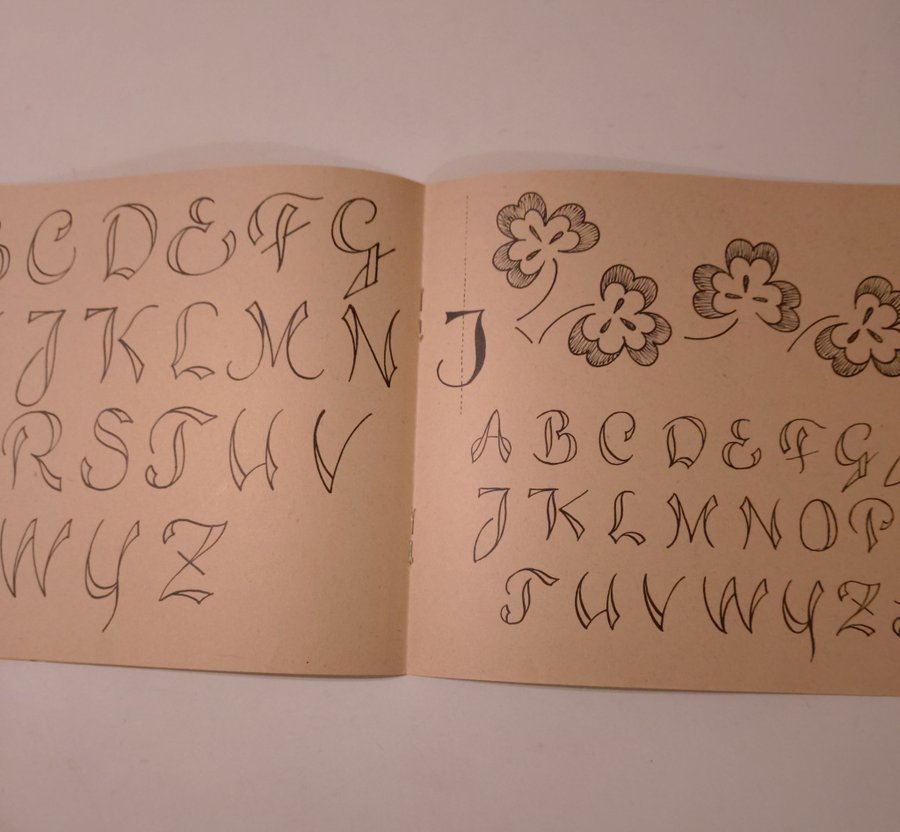 B C D E F G
J K L M N
R S T U V
W Y Z
J
A B C D E F G
J K L M N O P
T U V W Y Z